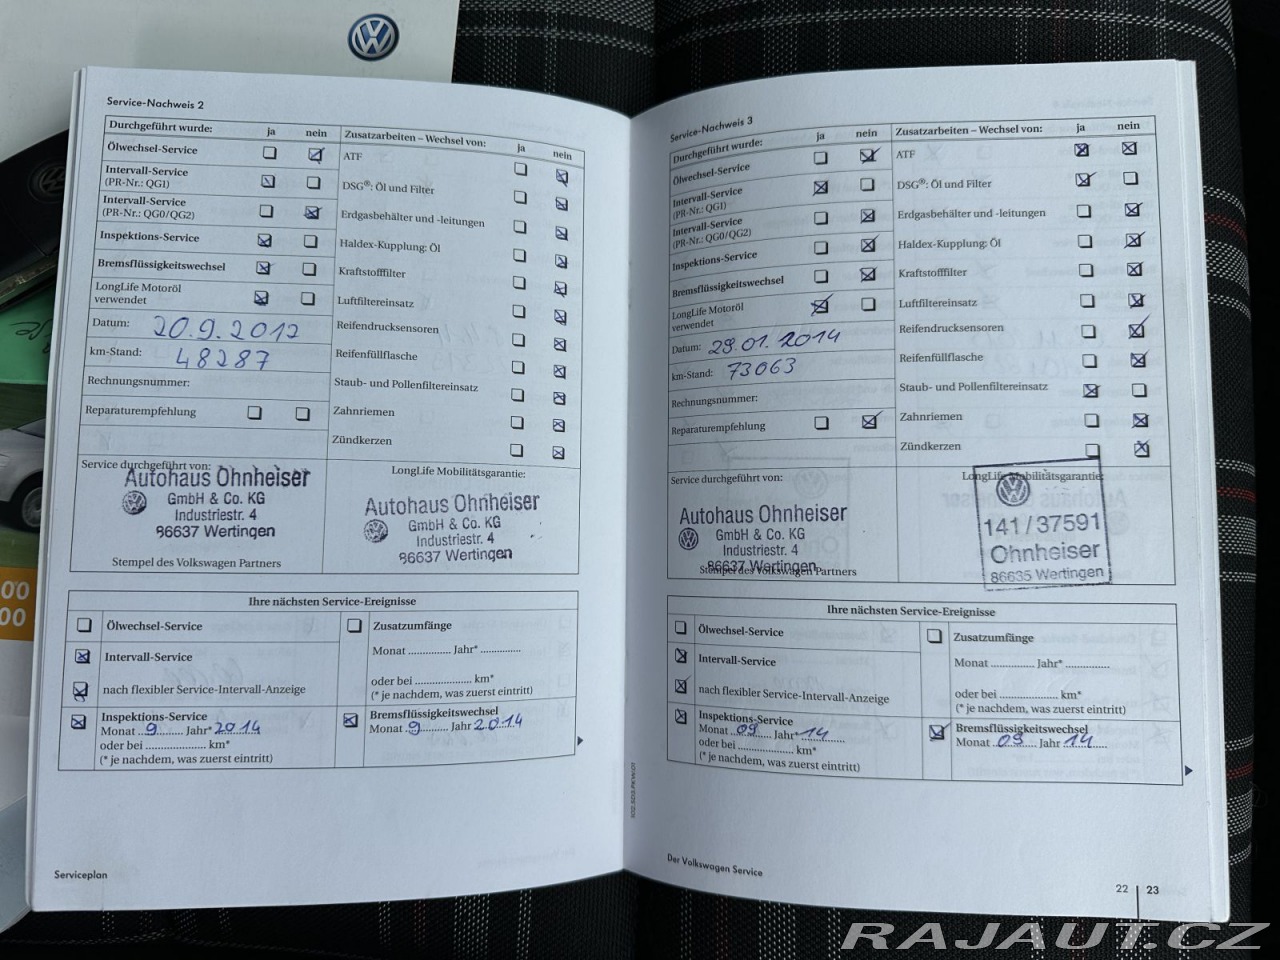 Service-Nachweis 2
Durchgeführt wurde: ja nein
Ölwechsel-Service
Intervall-Service
(PR-Nr.: QG1)
Intervall-Service
(PR-Nr.: QG0/QG2)
Inspektions-Service
Bremsflüssigkeitswechsel
LongLife Motoröl
verwendet
Datum: 20.9.2012
km-Stand: 48287
Rechnungsnummer:
Reparaturempfehlung
Zusatzarbeiten – Wechsel von: ja nein
ATF
DSG®: Öl und Filter
Erdgasbehälter und -leitungen
Haldex-Kupplung: Öl
Kraftstofffilter
Luftfiltereinsatz
Reifendrucksensoren
Reifenfüllflasche
Staub- und Pollenfiltereinsatz
Zahnriemen
Zündkerzen
Service durchgeführt von:
Autohaus Ohnheiser
GmbH & Co. KG
Industriestr. 4
86637 Wertingen
Stempel des Volkswagen Partners
LongLife Mobilitätsgarantie:
Autohaus Ohnheiser
GmbH & Co. KG
Industriestr. 4
86637 Wertingen
Ihre nächsten Service-Ereignisse
Ölwechsel-Service
Intervall-Service
nach flexibler Service-Intervall-Anzeige
Inspektions-Service
Monat 9 Jahr* 2014
oder bei ..................... km*
(* je nachdem, was zuerst eintritt)
Zusatzumfänge
Monat ............... Jahr* ..............
oder bei ..................... km*
(* je nachdem, was zuerst eintritt)
Bremsflüssigkeitswechsel
Monat 9 Jahr 2014
Serviceplan
Service-Nachweis 3
Durchgeführt wurde: ja nein
Ölwechsel-Service
Intervall-Service
(PR-Nr.: QG1)
Intervall-Service
(PR-Nr.: QG0/QG2)
Inspektions-Service
Bremsflüssigkeitswechsel
LongLife Motoröl
verwendet
Datum: 29.01.2014
km-Stand: 73063
Rechnungsnummer:
Reparaturempfehlung
Zusatzarbeiten – Wechsel von: ja nein
ATF
DSG®: Öl und Filter
Erdgasbehälter und -leitungen
Haldex-Kupplung: Öl
Kraftstofffilter
Luftfiltereinsatz
Reifendrucksensoren
Reifenfüllflasche
Staub- und Pollenfiltereinsatz
Zahnriemen
Zündkerzen
Service durchgeführt von:
Autohaus Ohnheiser
GmbH & Co. KG
Industriestr. 4
86637 Wertingen
Stempel des Volkswagen Partners
LongLife Mobilitätsgarantie:
141/37591
Ohnheiser
86635 Wertingen
Ihre nächsten Service-Ereignisse
Ölwechsel-Service
Intervall-Service
nach flexibler Service-Intervall-Anzeige
Inspektions-Service
Monat 09 Jahr* 14
oder bei ..................... km*
(* je nachdem, was zuerst eintritt)
Zusatzumfänge
Monat ............... Jahr* ...............
oder bei ..................... km*
(* je nachdem, was zuerst eintritt)
Bremsflüssigkeitswechsel
Monat 09 Jahr 14
Der Volkswagen Service
22 | 23
RAJAUT.CZ